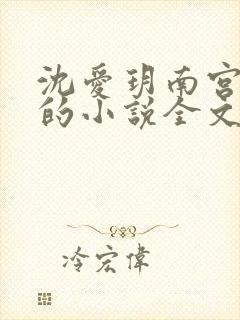 沈愛玥南宮
的小說全文
冷宏偉